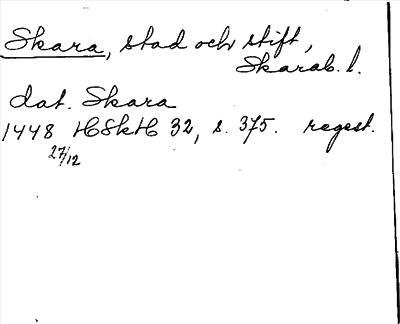 Skara, stad och stift,
Skarab. l.
dat. Skara
1448 HSkH 32, s. 375. regest.
27/12